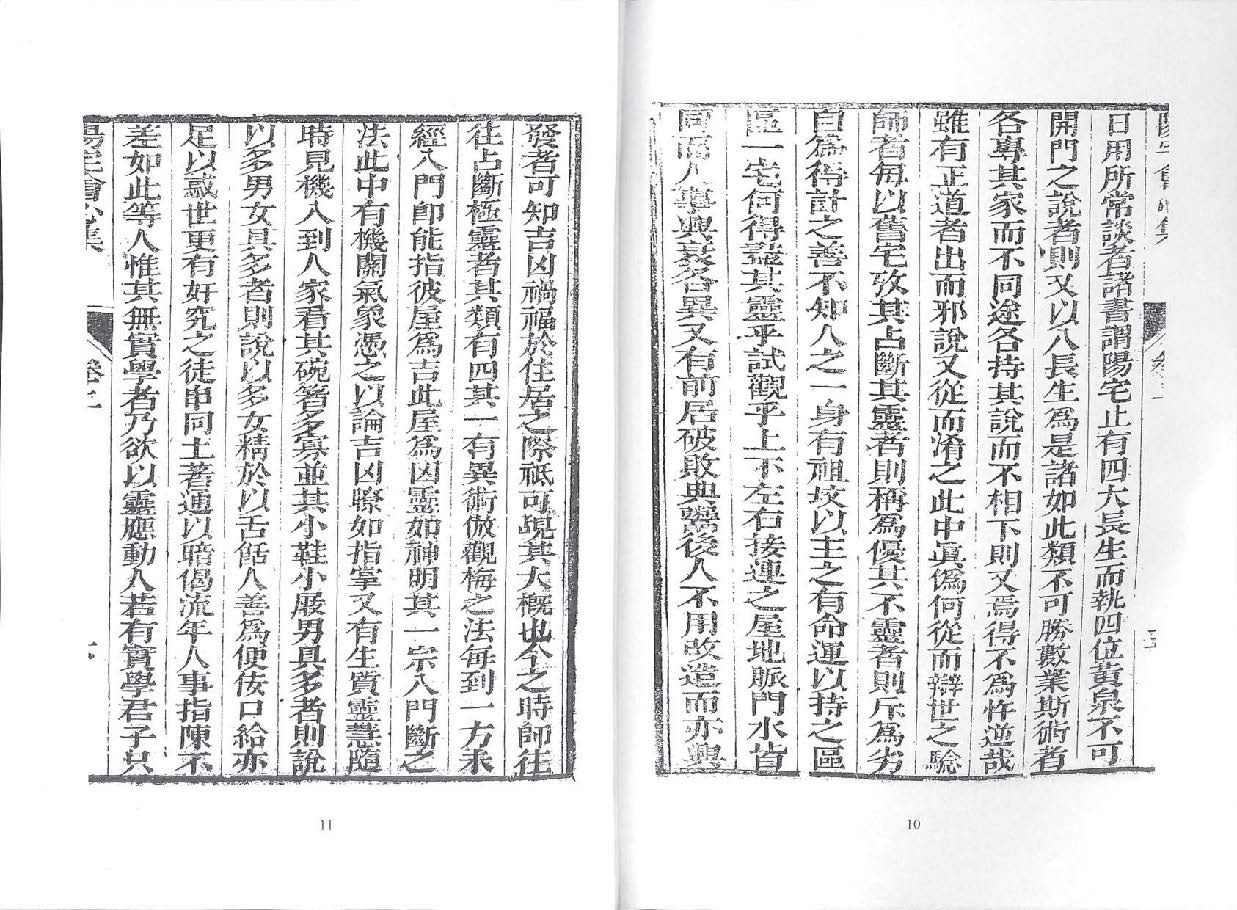 陽宅會心集
卷上
五
日用所常談者諸書謂陽宅止有四大長生而執四位黃泉不可
開門之說者則又以八長生為是諸如此類不可勝數業斯術者
各專其家而不同途各持其說而不相下則又焉得不為忤逆哉
雖有正道者出而邪說又從而淆之此中眞僞何從而辯世之驗
師者每以舊宅攷其占斷其靈者則稱為優其不靈者則斥為劣
自為得計之善不知人之一身有祖坟以主之有命運以持之區
區一宅何得盡其靈乎試觀乎上下左右接連之屋地脈門水皆
同而人事興衰各異又有前居破敗典鬻後人不用改造而亦興
10
發者可知吉凶禍福於住居之際祗可覘其大槪也今之時師往
往占斷極靈者其類有四其一有異術倣觀梅之法每到一方未
經入門卽能指彼屋為吉此屋為凶靈如神明其一宗八門斷之
法此中有機關氣象憑之以論吉凶瞭如指掌又有生質靈慧隨
時見機入到人家看其碗箸多寡並其小鞋小屐男具多者則說
以多男女具多者則說以多女精於以舌餂人善為便佞口給亦
足以惑世更有奸究之徒串同土著連以暗偈流年人事指陳不
差如此等人惟其無實學者乃欲以靈應動人若有實學君子只
陽宅會心集
卷上
六
11